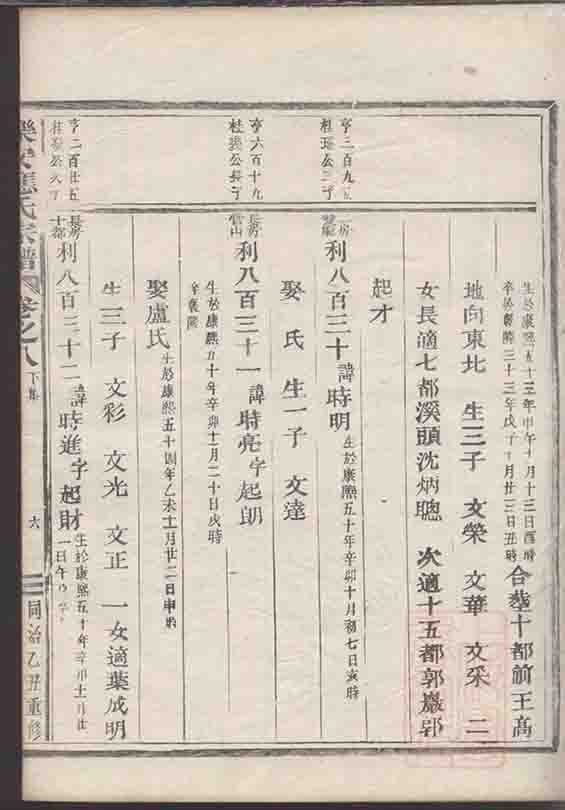 生於康熙五十三年甲午十月十三日酉時
卒於乾隆三十三年戊子十月廿三日丑時
合塟十都前王高
地向東北 生三子 文榮 文華 文采 二
女長適七都溪頭沈炳聰 次適十五都郭巖郢
起才
亨三百九五
桂瑤公三子
利八百三十 諱 時明 生於康熙五十年辛卯十月初七日亥時
娶 氏 生一子 文達
亨六百十九
公長子
長房
利八百三十一 諱 時亮 字 起朗
生於康熙五十年辛卯十二月二十日戌時
卒
娶盧氏 生於康熙五十四年乙未十一月廿二日申時
生三子 文彩 文光 文正 一女適葉成明
亨二百廿五
長房
十都
利八百三十二 諱 時進 字 起財 生於康熙五十年辛卯十二月廿
一日午
氏宗譜 卷之八 下集 六 同治乙丑重修